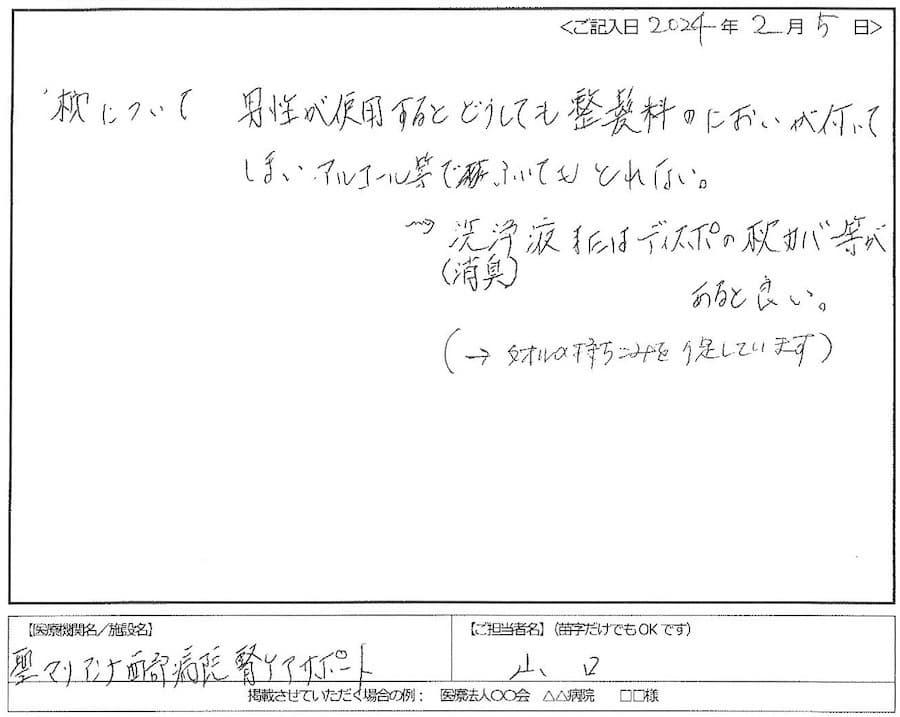 <ご記入日 2024年 2月 5日>
・枕について 男性が使用するとどうしても整髪料のにおいが付いて
しまい アルコール等でふいてもとれない。
→ 洗浄液またはディスポの枕カバー等が
(消臭)
あると良い。
(→ タオルの持ちこみを促しています)
【医療機関名/施設名】
【ご担当者名】(苗字だけでもOKです)
聖マリアンナ西部病院 腎ケアサポート
山口
掲載させていただく場合の例: 医療法人〇〇会 △△病院 □□様